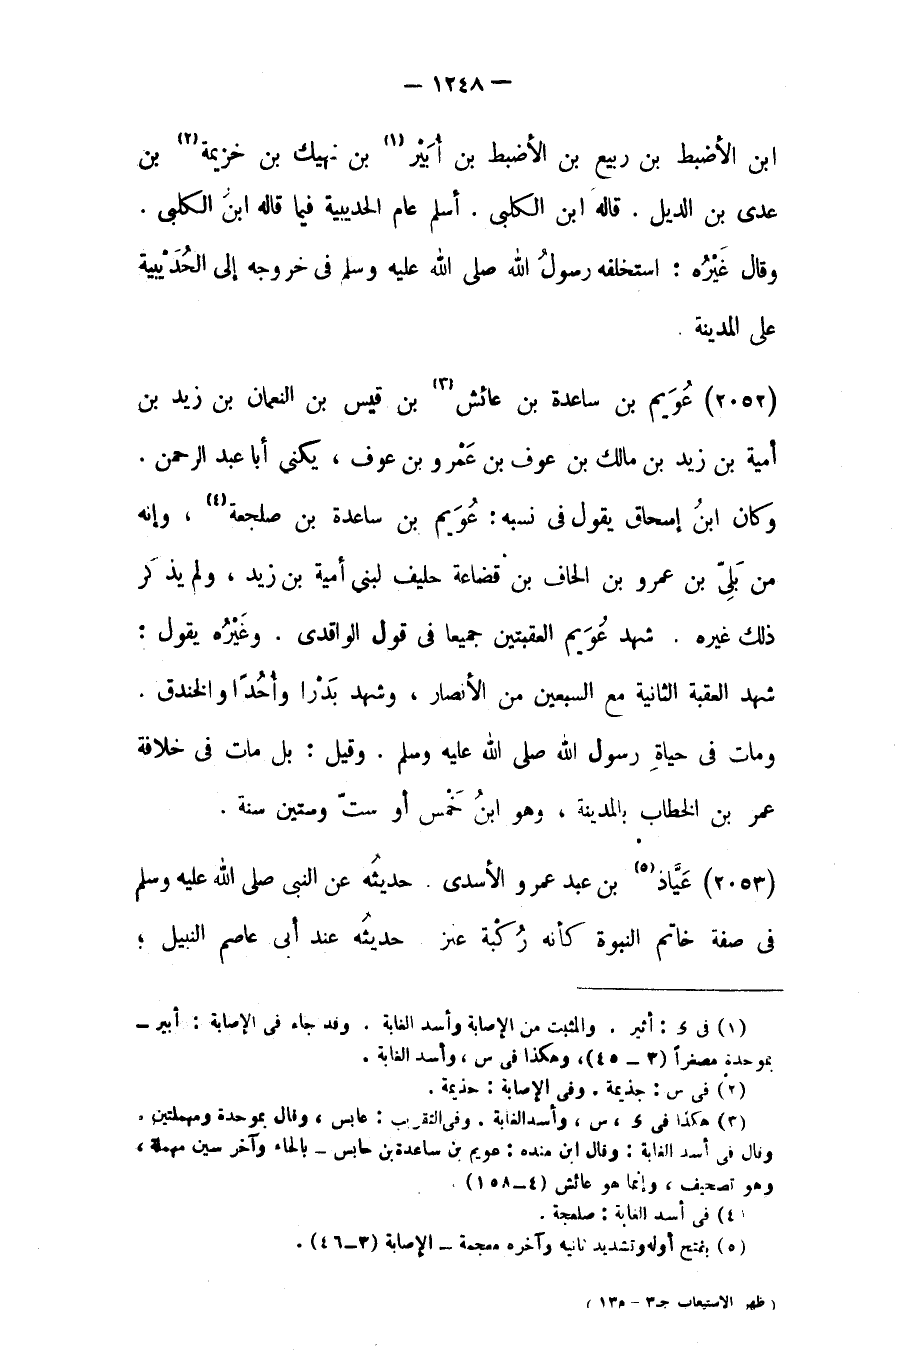 — ١٢٤٨ —
ابن الأضبط بن ربيع بن الأضبط بن أُبَيْر (١) بن نهيك بن خزيمة (٢) بن
عدى بن الديل . قاله ابن الكلبى . أسلم عام الحديبية فيما قاله ابنُ الكلبى .
وقال غَيْرُه : استخلفه رسولُ الله صلى الله عليه وسلم فى خروجه إلى الحُدَيْبية
على المدينة .
(٢٠٥٢) عُوَيم بن ساعدة بن عائش (٣) بن قيس بن النعمان بن زيد بن
أمية بن زيد بن مالك بن عوف بن عَمْرو بن عوف ، يكنى أبا عبد الرحمن .
وكان ابنُ إسحاق يقول فى نسبه : عُوَيم بن ساعدة بن صلجعة (٤) ، وإنه
من بَلِىّ بن عمرو بن الحاف بن قضاعة حليف لبنى أمية بن زيد ، ولم يذكر
ذلك غيره . شهد عُوَيم العقبتين جميعا فى قول الواقدى . وغَيْرُه يقول :
شهد العقبة الثانية مع السبعين من الأنصار ، وشهد بَدْرا وأُحُدًا والخندق .
ومات فى حياةِ رسول الله صلى الله عليه وسلم . وقيل : بل مات فى خلافة
عمر بن الخطاب بالمدينة ، وهو ابنُ خَمْس أو ستّ وستين سنة .
(٢٠٥٣) عَيَّاذ (٥) بن عبد عمرو الأسدى . حديثُه عن النبى صلى الله عليه وسلم
فى صفة خاتم النبوة كأنه رُكْبة عنز . حديثُه عند أبى عاصم النبيل ؛
(١) فى ى : أثير . والمثبت من الإصابة وأسد الغابة . وقد جاء فى الإصابة : أبير –
بموحدة مصغراً (٣ – ٤٥)، وهكذا فى س ، وأسد الغابة .
(٢) فى س : جذيمة . وفى الإصابة : حذيمة .
(٣) هكذا فى ى ، س ، وأسد الغابة . وفى التقريب : عابس ، وقال بموحدة ومهملتين .
وقال فى أسد الغابة : وقال ابن منده : عويم بن ساعدة بن حابس – بالحاء وآخر سين مهملة ،
وهو تصحيف ، وإنما هو عائش (٤–١٥٨) .
(٤) فى أسد الغابة : صلعجة .
(٥) بفتح أوله وتشديد ثانيه وآخره معجمة – الإصابة (٣–٤٦) .
( ظهر الاستيعاب جـ٣ – م١٣ )